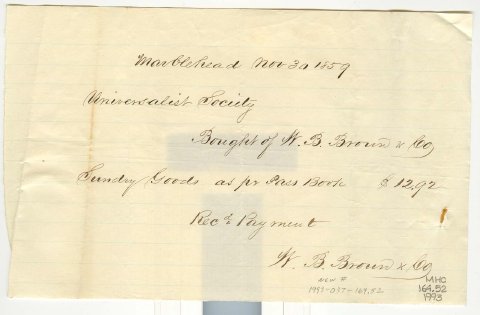 Marblehead Nov 30 1859
Universalist Society
Bought of W. B. Brown & Co
Sundry Goods as pr Pass Book $12.92
Recd Payment
W. B. Brown & Co
new #
MHC
164.52
1993